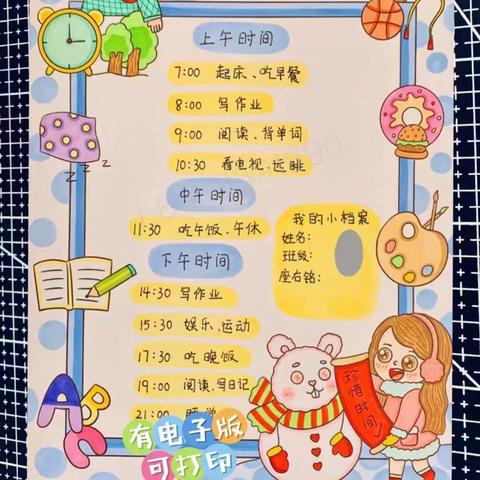 上午时间
7:00 起床、吃早餐
8:00 写作业
9:00 阅读、背单词
10:30 看电视、远眺
中午时间
11:30 吃午饭、午休
下午时间
14:30 写作业
15:30 娱乐、运动
17:30 吃晚饭
19:00 阅读、写日记
21:00
我的小档案
姓名:
班级:
座右铭:
Z Z Z
A B C
珍惜时间
有电子版
可打印